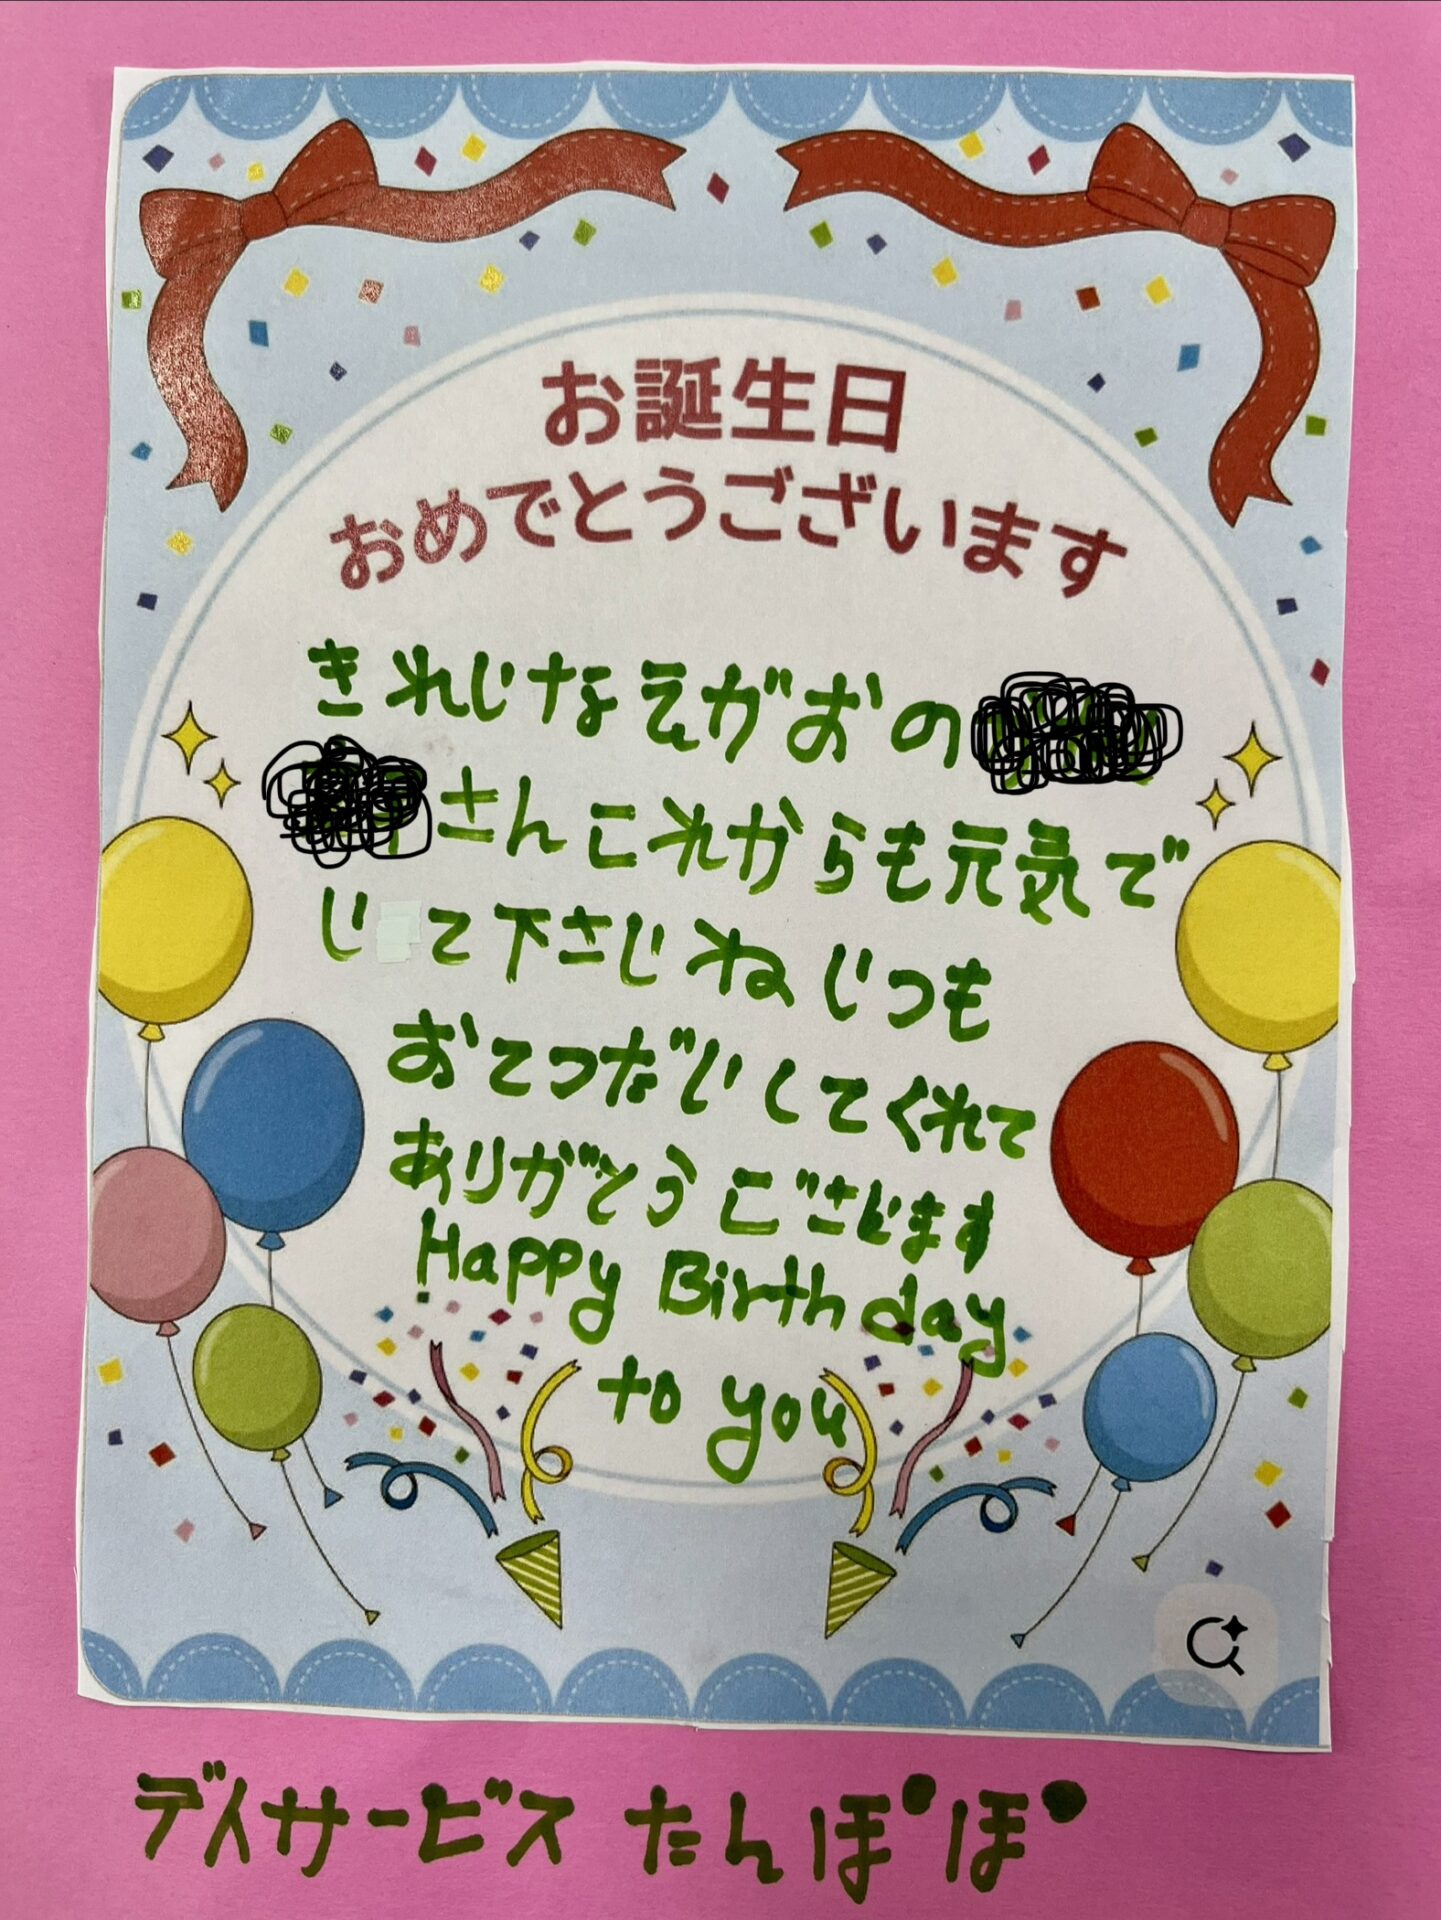 お誕生日
おめでとうございます
きれいなえがおの
さんこれからも元気で
いて下さいねいつも
おてつだいしてくれて
ありがとうございます
Happy Birthday
to you
デイサービス たんぽぽ